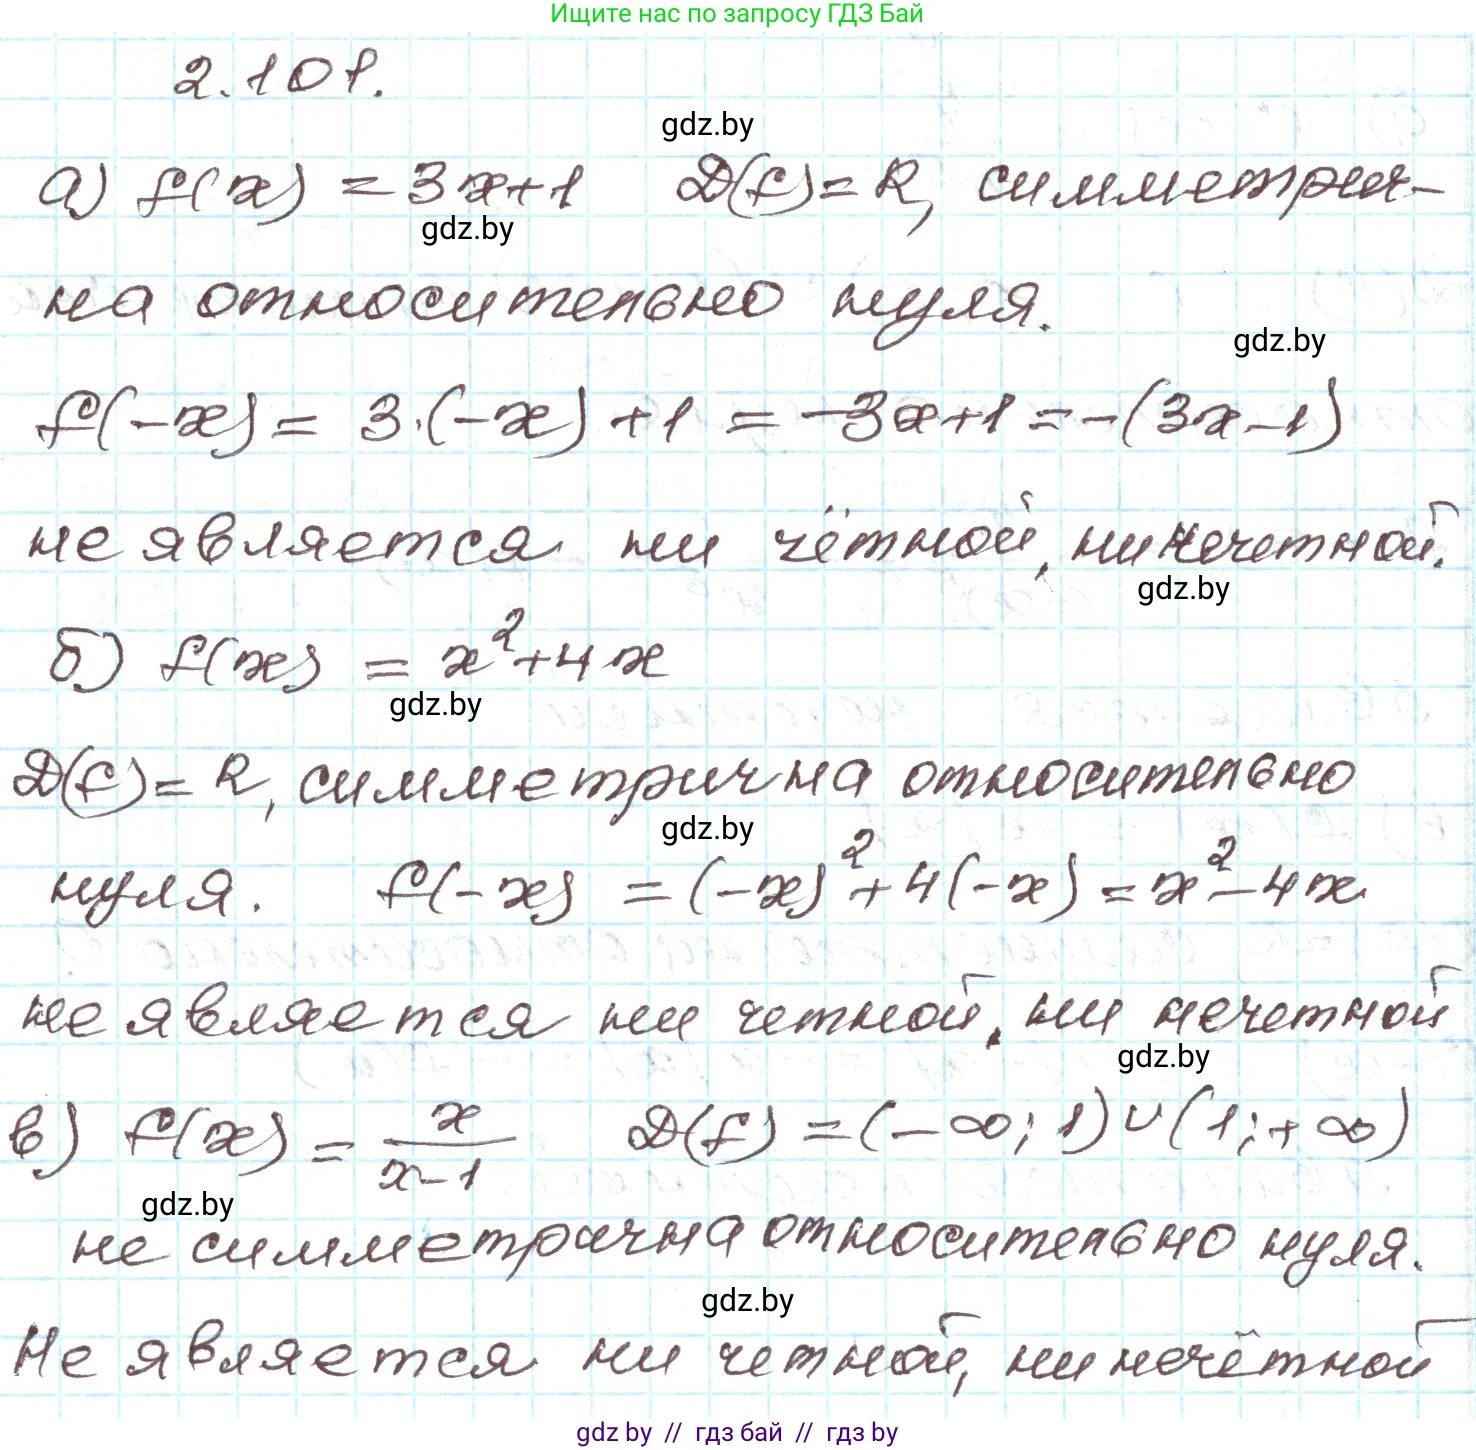 Ищите нас по запросу ГДЗ Бай
2.101.
gdz.by
а) f(x) = 3x+1 D(f)=R, симметрич-
gdz.by
на относительно нуля.
gdz.by
f(-x) = 3·(-x)+1 = -3x+1 = -(3x-1)
не является ни чётной, ни нечетной.
gdz.by
б) f(x) = x²+4x
gdz.by
D(f)=R, симметрична относительно
gdz.by
нуля. f(-x) = (-x)²+4(-x) = x²-4x
не является ни четной, ни нечетной
gdz.by
в) f(x) = x/(x-1) D(f) = (-∞; 1)∪(1; +∞)
gdz.by
не симметрична относительно нуля.
gdz.by
Не является ни четной, ни нечётной
gdz by // гдз бай // гдз by